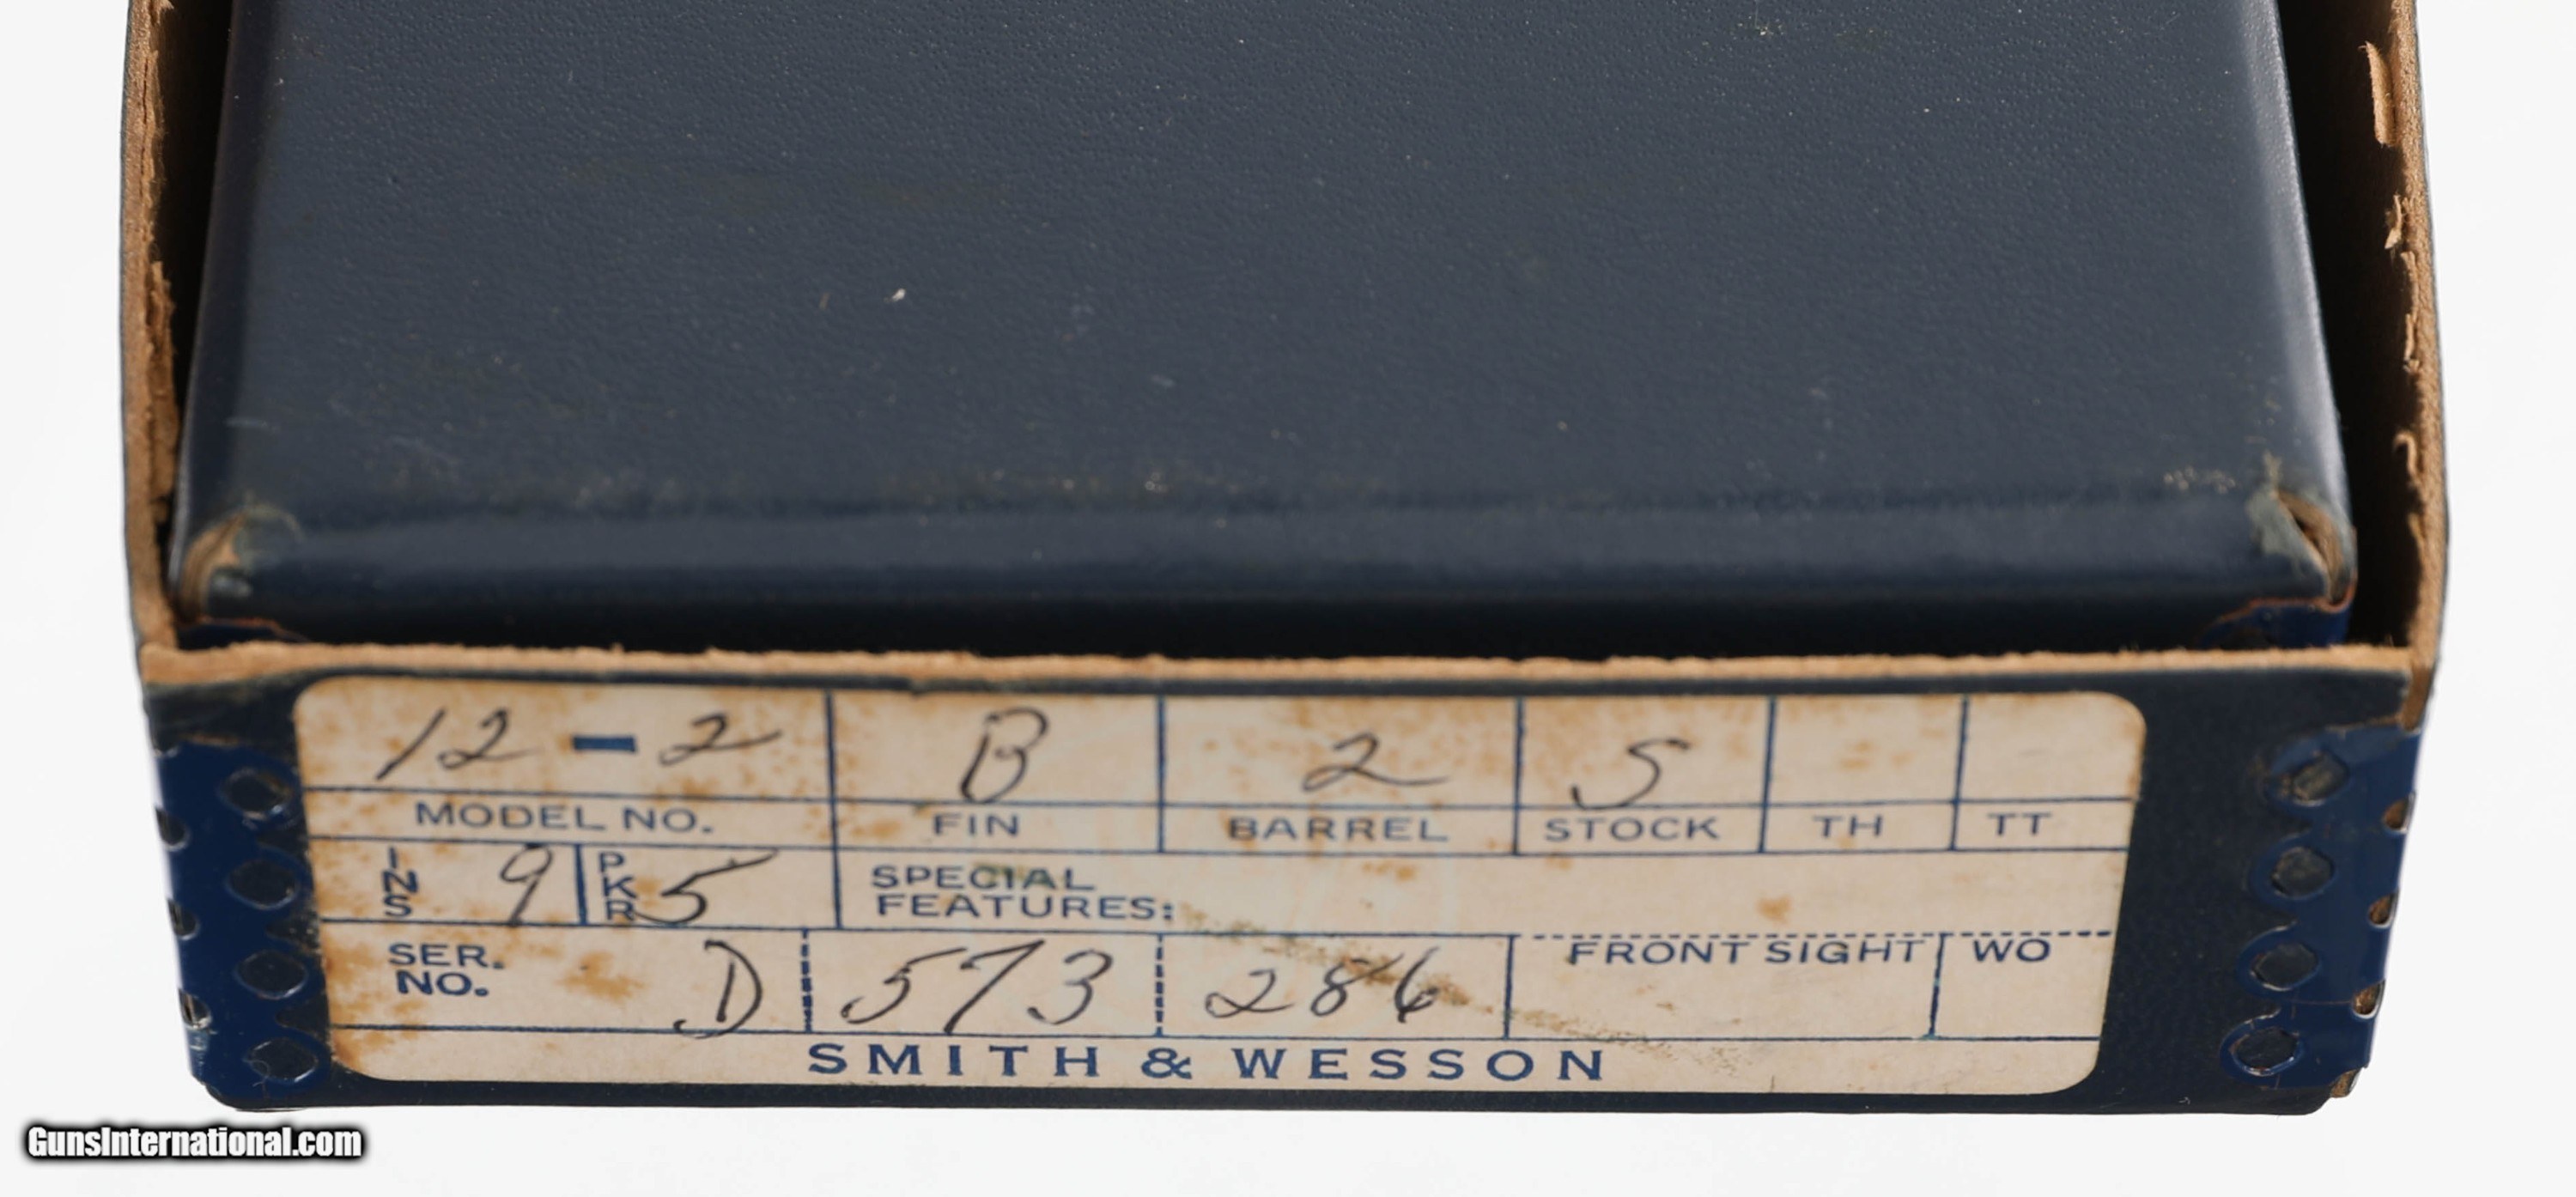 12 - 2 B 2 S
MODEL NO. FIN BARREL STOCK TH TT
INS 9 PKR 5 SPECIAL
FEATURES:
SER.
NO. D 573 286 FRONT SIGHT WO
SMITH & WESSON
GunsInternational.com